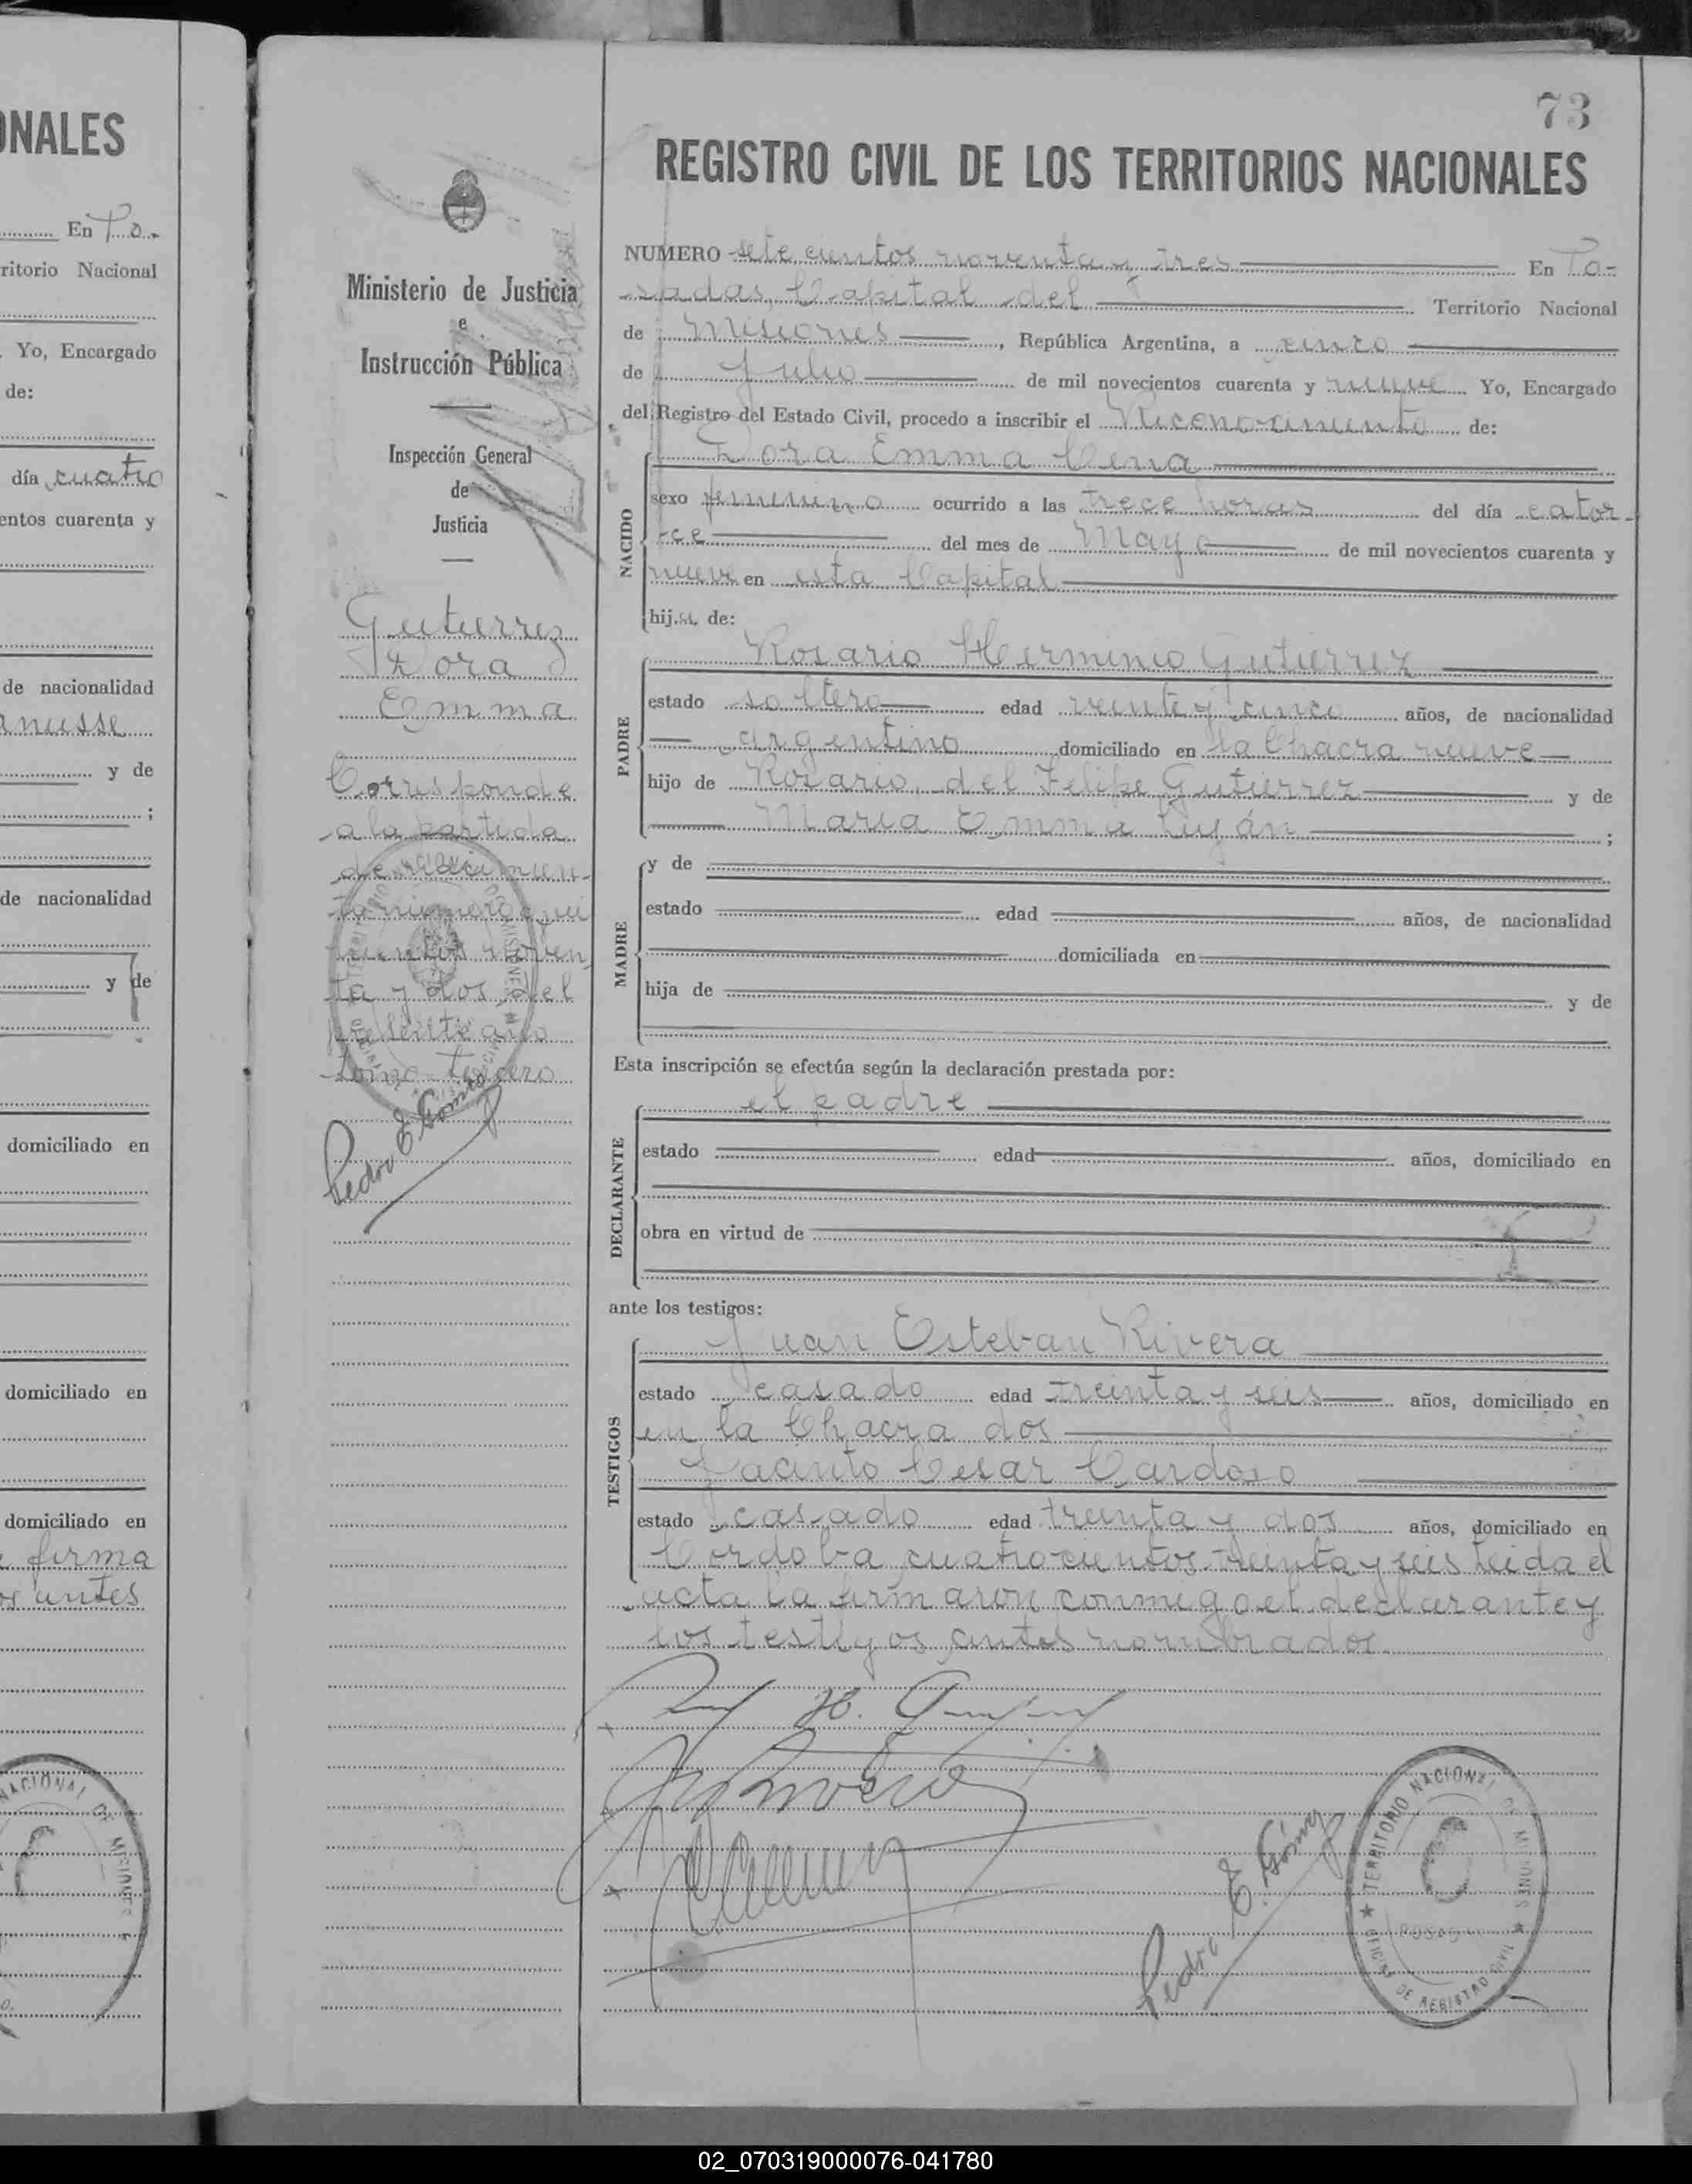 73
REGISTRO CIVIL DE LOS TERRITORIOS NACIONALES
NUMERO sete cientos noventa y tres En Po-
sadas, Capital del Territorio Nacional
de Misiones, República Argentina, a cinco
de Julio de mil novecientos cuarenta y nueve Yo, Encargado
del Registro del Estado Civil, procedo a inscribir el Reconocimiento de:
Dora Emma Cena
NACIDO
sexo femenino ocurrido a las trece horas del día cator-
-ce del mes de Mayo de mil novecientos cuarenta y
nueve en esta Capital
hija de:
PADRE
Rosario Herminio Gutierrez
estado soltero edad veinte y cinco años, de nacionalidad
argentino domiciliado en la Chacra nueve
hijo de Rosario del Felipe Gutierrez y de
Maria Emma Luján;
MADRE
y de
estado edad años, de nacionalidad
domiciliada en
hija de y de
Esta inscripción se efectúa según la declaración prestada por:
DECLARANTE
el padre
estado edad años, domiciliado en
obra en virtud de
ante los testigos:
TESTIGOS
Juan Esteban Rivera
estado casado edad treinta y seis años, domiciliado en
en la Chacra dos
Jacinto Cesar Cardoso
estado casado edad treinta y dos años, domiciliado en
Cordoba cuatrocientos treinta y seis Leida el
acta la firmaron conmigo el declarante y
los testigos antes nombrados.
Pedro E. Gómez
TERRITORIO NACIONAL DE MISIONES
POSADAS
OFICINA DE REGISTRO CIVIL
Ministerio de Justicia
e
Instrucción Pública
Inspección General
de
Justicia
Gutierrez
Dora
Emma
Corresponde
a la partida
de nacimien-
to numero qui
nientos noven
ta y dos del
presente año
tomo tercero
Pedro E Gómez
ONALES
En Po-
ritorio Nacional
Yo, Encargado
de:
día cuatro
entos cuarenta y
de nacionalidad
anusse
y de
;
de nacionalidad
y de
domiciliado en
domiciliado en
domiciliado en
firma
antes
NACIONAL DE MISIONES
02_070319000076-041780